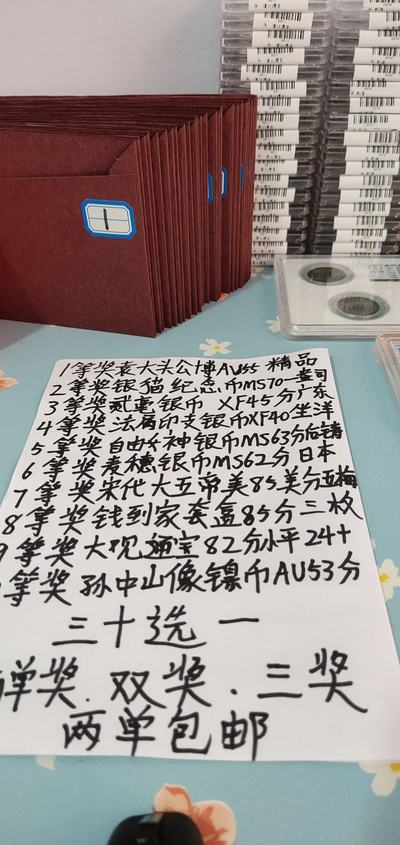 1
1等奖袁大头公博AU55 精品
2等奖银猫纪念币MS70一盎司
3等奖贰毫银币 XF45分广东
4等奖法属印支银币XF40坐洋
5等奖自由女神银币MS63分后铸
6等奖麦穗银币MS62分日本
7等奖宋代大五帝美85美分五梅
8等奖钱到家套盒85分三枚
9等奖大观通宝82分小平24+
等奖孙中山像镍币AU53分
三十选一
单奖.双奖.三奖
两单包邮